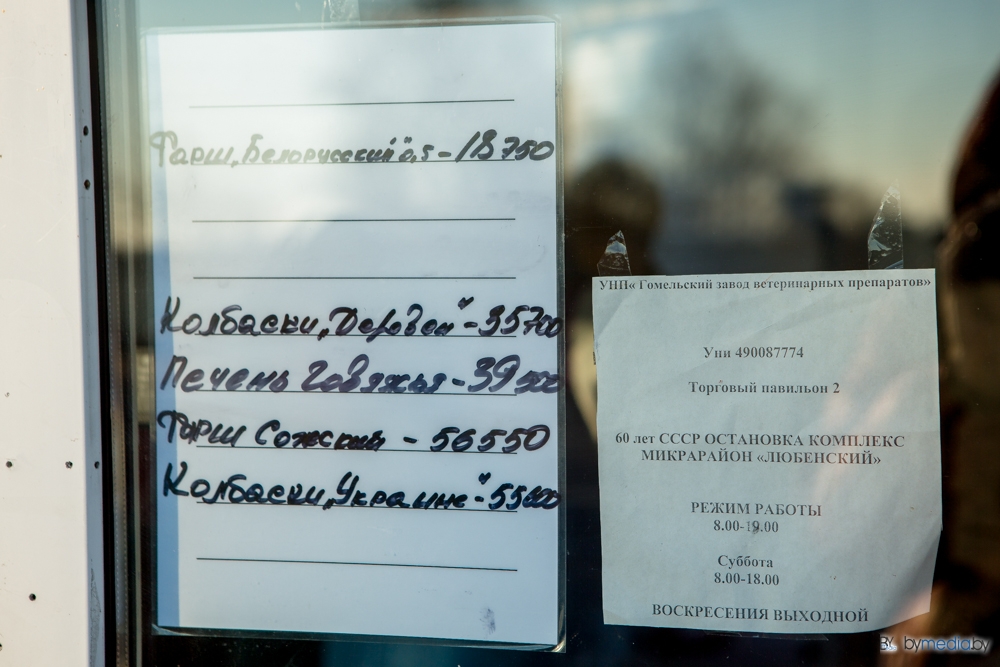 Фарш „Белорусский" 0,5 - 18750
Колбаски „Деревен" - 35700
Печень говяжья - 39500
Фарш Сожский - 56550
Колбаски „Украинс" -
УНП« Гомельский завод ветеринарных препаратов»
Уни 490087774
Торговый павильон 2
60 лет СССР ОСТАНОВКА КОМПЛЕКС
МИКРАРАЙОН «ЛЮБЕНСКИЙ»
РЕЖИМ РАБОТЫ
8.00-19.00
Суббота
8.00-18.00
ВОСКРЕСЕНИЯ ВЫХОДНОЙ
bymedia.by